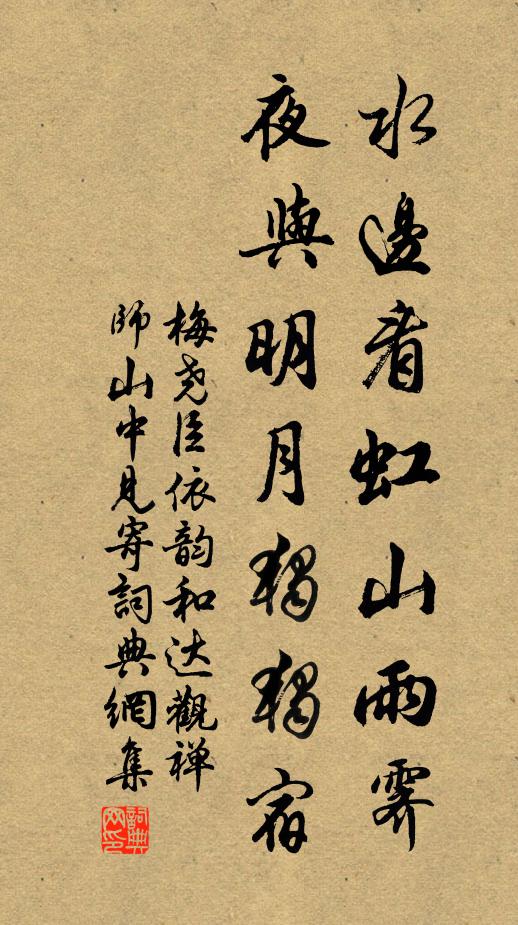 水邊看虹山雨霽
夜與明月獨獨宿
梅尧臣依韵和达觀禅
師山中見寄詞典網集
詞典
网印